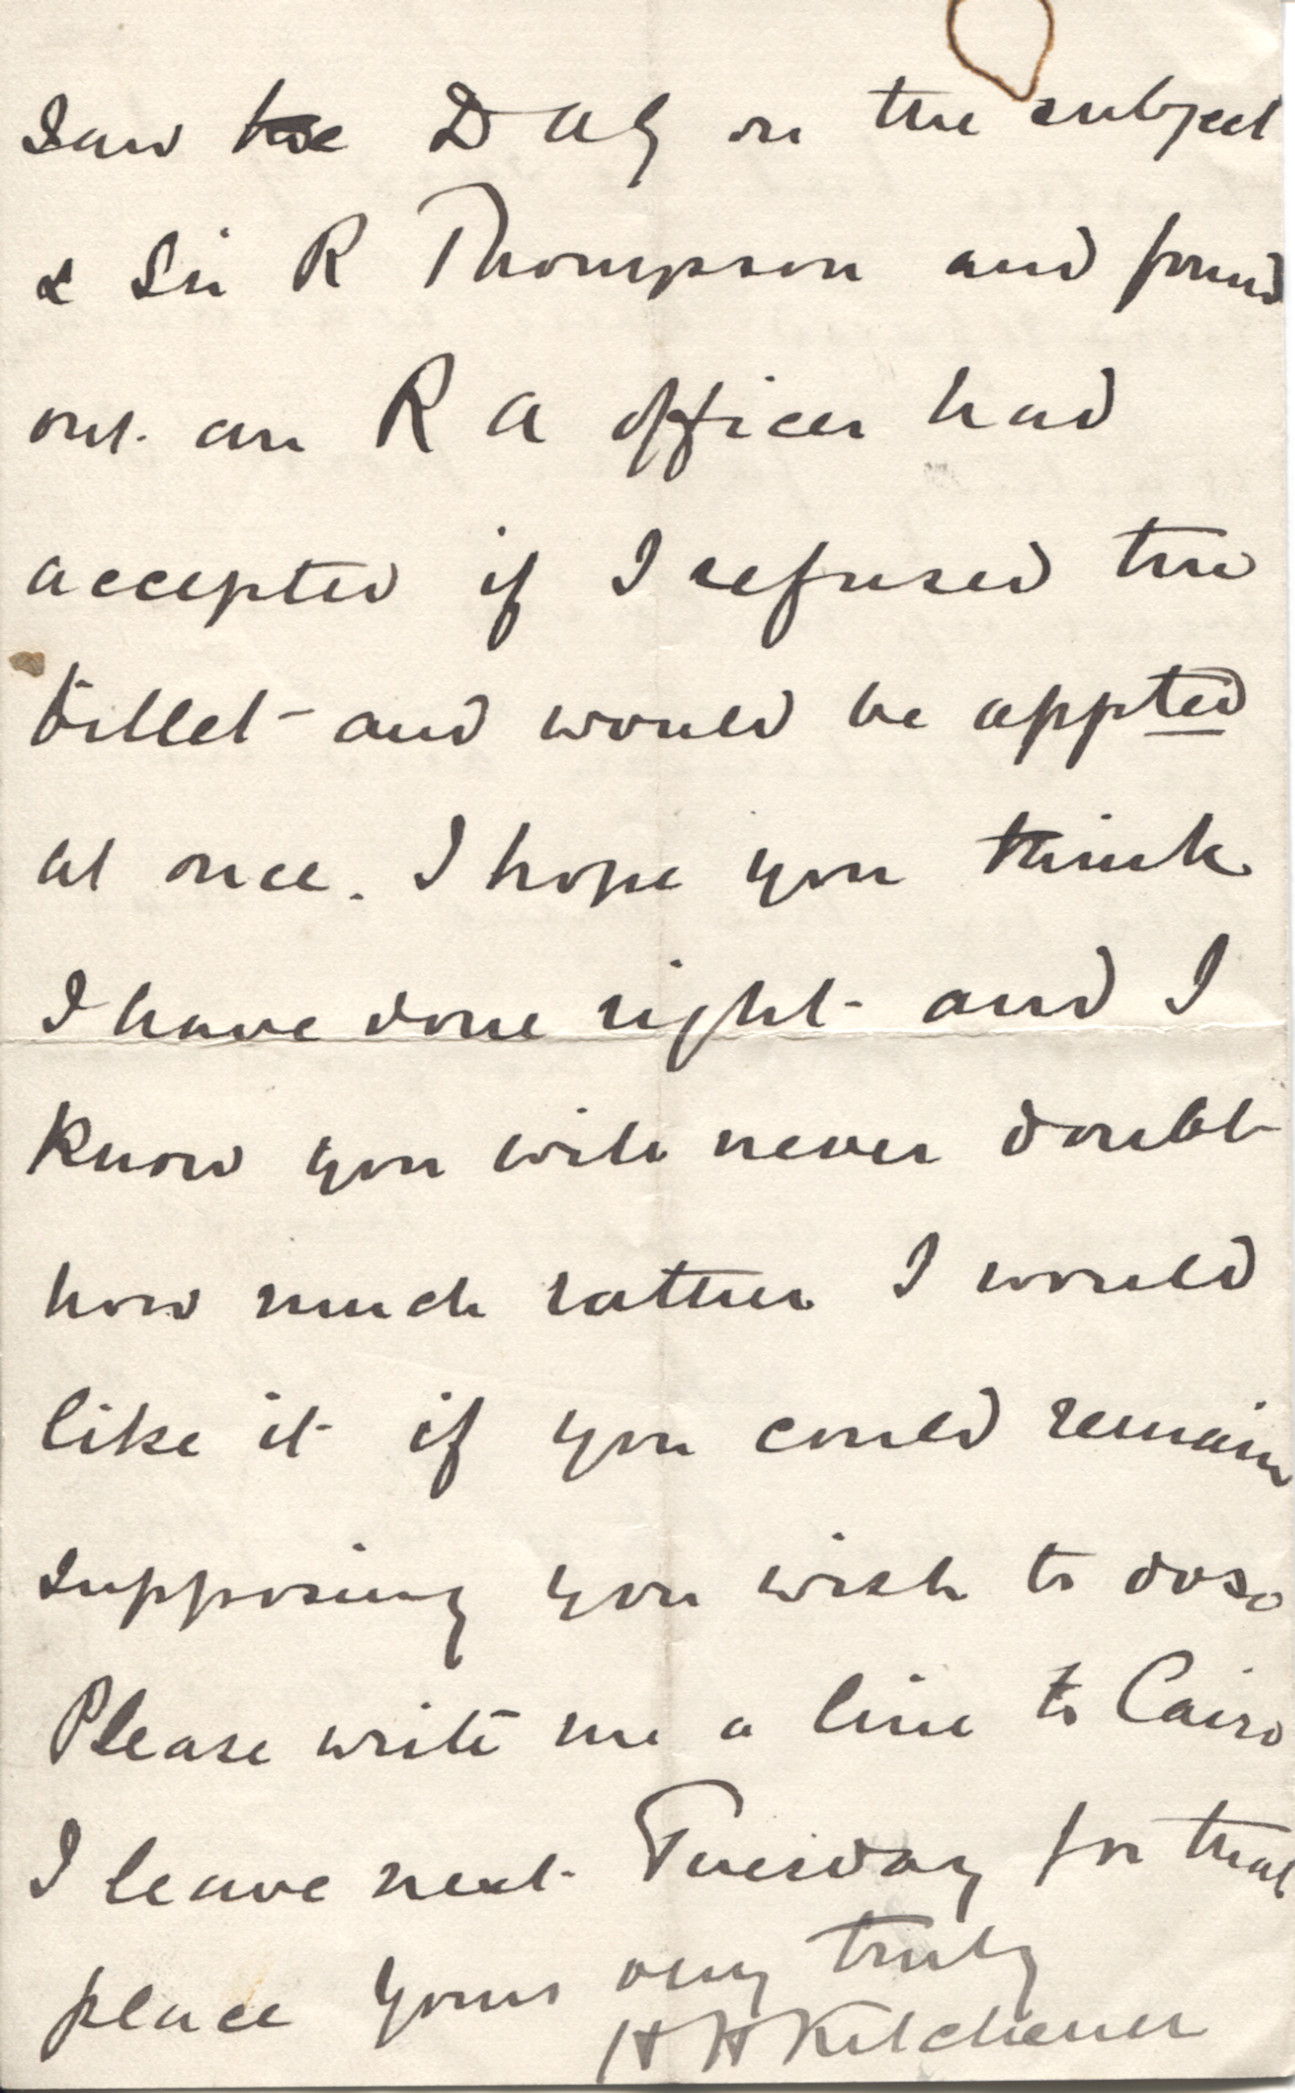 saw the D A G on the subject
& Sir R Thompson and found
out an R A officer had
accepted if I refused the
billet - and would be appted
at once. I hope you think
I have done right - and I
know you will never doubt
how much rather I would
like it if you could remain
supposing you wish to do so
Please write me a line to Cairo
I leave next Tuesday for that
place Yours very truly
HHKitchener